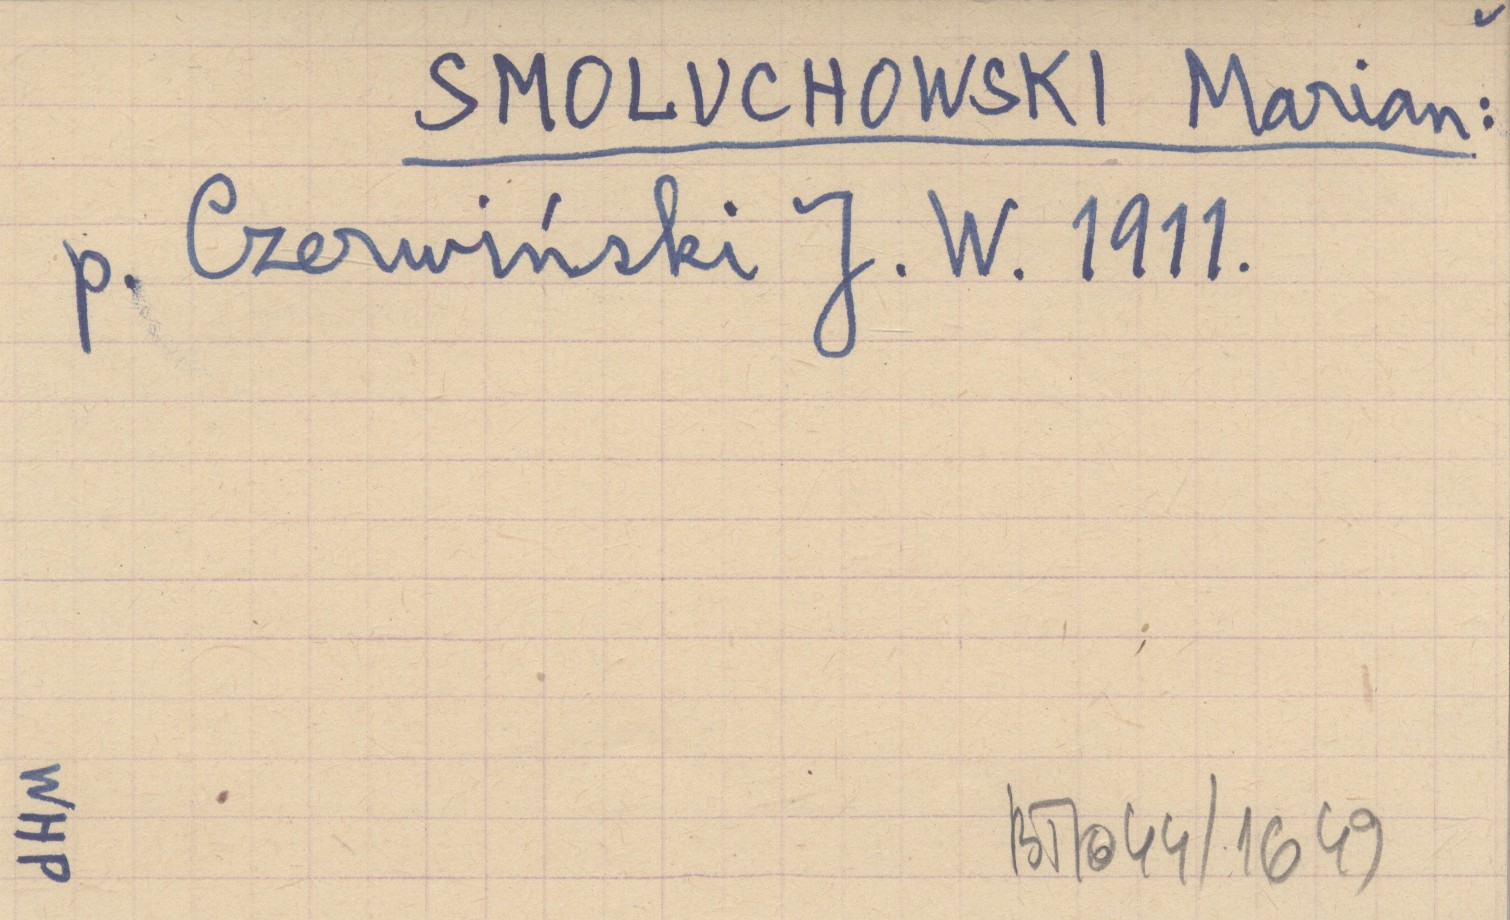 SMOLUCHOWSKI Marian:
p. Czerwiński J. W. 1911.
WHP
44/1649